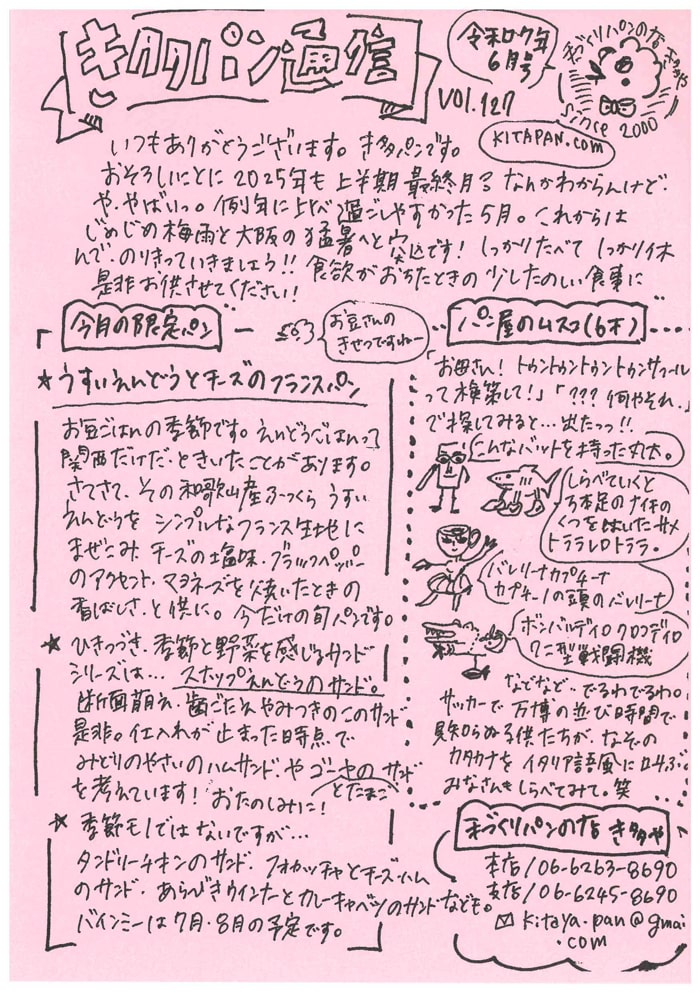 キタタパン通信
令和7年
6月号
VOL.127
手づくりパンの店 きタや
since 2000
KITAPAN.com
いつもありがとうございます。き多パンです。
おそろしいことに2025年も上半期最終月。なんかわからんけど
や、やばいっ。例年に比べ過ごしやすかった5月。これからは
じめじめ梅雨と大阪の猛暑へと突
入です！しっかりたべてしっかり休
んで、のりきっていきましょう!! 食欲がおちたときの少したのしい食事に
是非お供させてください！
今月の限定パン
お豆さんの
きせつですねー
★うすいえんどうとチーズのフランスパン
お豆ごはんの季節です。えんどうごはんって
関西だけだ、ときいたことがあります。
さてさて、その和歌山産ふっくらうすい
えんどうを シンプルなフランス生地に
まぜこみ、チーズの塩味、ブラックペッパー
のアクセント、マヨネーズを焼いたときの
香ばしさ、と供に。今だけの旬パンです。
★ひきつづき、季節と野菜を感じるサンド
シリーズは… スナップえんどうのサンド。
断面萌え、歯ごたえやみつきのこのサンド
是非。仕入れが止まった時点で
みどりのやさいのハムサンド、や ゴーヤのサンド
とたまご
を考えています！おたのしみに！
★季節モノではないですが…
タンドリーチキンのサンド、フォカッチャとチーズハム
のサンド、あらびきウインナーとカレーキャベツのサンドなども。
バインミーは7月・8月の予定です。
パン屋のムスコ(6才)
「お母さん！トゥントゥントゥントゥンサフール
って検索して！」「???何やそれ。」
で探してみると…出たっっ!!
こんなバットを持った丸太。
しらべていくと
3本足のナイキの
くつをはいたサメ
トララレロトララ。
バレリーナカプチーナ
カプチーノの頭のバレリーナ
ボンバルディロクロコディロ
ワニ型戦闘機
などなど…でるわでるわ。
サッカーで 万博の並び時間で
見知らぬ子供たちが、なぞの
カタカナを イタリア語風に口ずさむ
みなさんもしらべてみて。笑
手づくりパンの店 き多や
本店/06-6263-8690
支店/06-6245-8690
✉kitaya.pan@gmai
.com